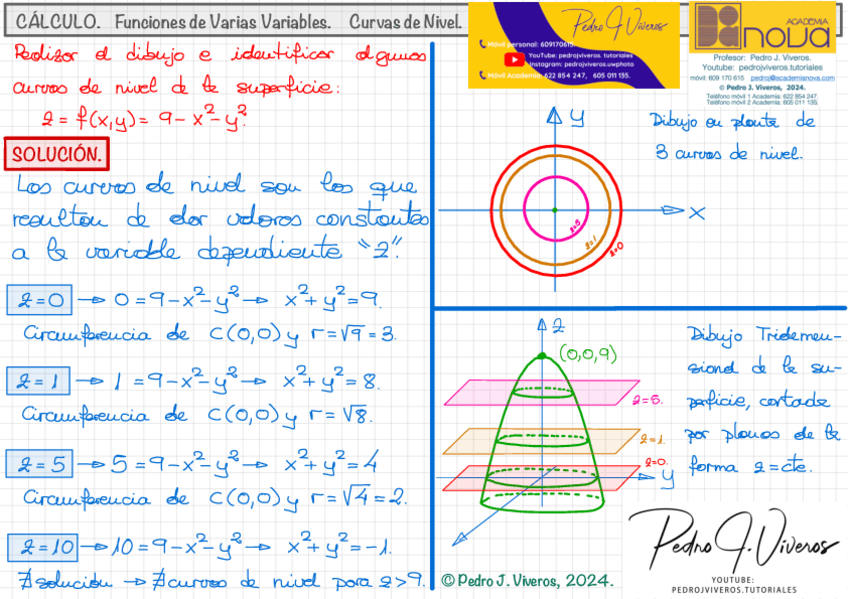 CÁLCULO. Funciones de Varias Variables. Curvas de Nivel.
Realizar el dibujo e identificar algunas
curvas de nivel de la superficie:
z = f(x,y) = 9 - x² - y².
SOLUCIÓN.
Las curvas de nivel son las que
resultan de dar valores constantes
a la variable dependiente "z".
z=0 → 0 = 9 - x² - y² → x² + y² = 9.
Circunferencia de C(0,0) y r = √9 = 3.
z=1 → 1 = 9 - x² - y² → x² + y² = 8.
Circunferencia de C(0,0) y r = √8.
z=5 → 5 = 9 - x² - y² → x² + y² = 4
Circunferencia de C(0,0) y r = √4 = 2.
z=10 → 10 = 9 - x² - y² → x² + y² = -1.
∄ solución → ∄ curvas de nivel para z > 9.
Pedro J. Viveros
Móvil personal: 609170615
YouTube: pedrojviveros.tutoriales
Instagram: pedrojviveros.uvphoto
Móvil Academia: 622 854 247, 605 011 135.
ACADEMIA
nova
Profesor: Pedro J. Viveros.
Youtube: pedrojviveros.tutoriales
móvil: 609 170 615 pedroj@academianova.com
© Pedro J. Viveros, 2024.
Teléfono móvil 1 Academia: 622 854 247.
Teléfono móvil 2 Academia: 605 011 135.
y
Dibujo en planta de
3 curvas de nivel.
x
z=5
z=1
z=0
z
(0,0,9)
z=5.
z=1.
z=0.
y
Dibujo Tridimen-
sional de la su-
perficie, cortada
por planos de la
forma z=cte.
© Pedro J. Viveros, 2024.
Pedro J. Viveros
YOUTUBE:
PEDROJVIVEROS.TUTORIALES